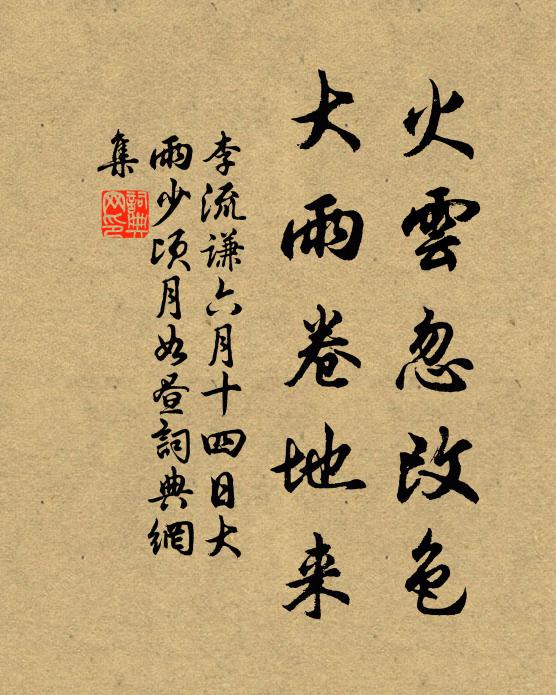 火雲忽改色
大雨卷地来
李流谦六月十四日大
雨少頃月如昼詞典網
集
詞典
网印